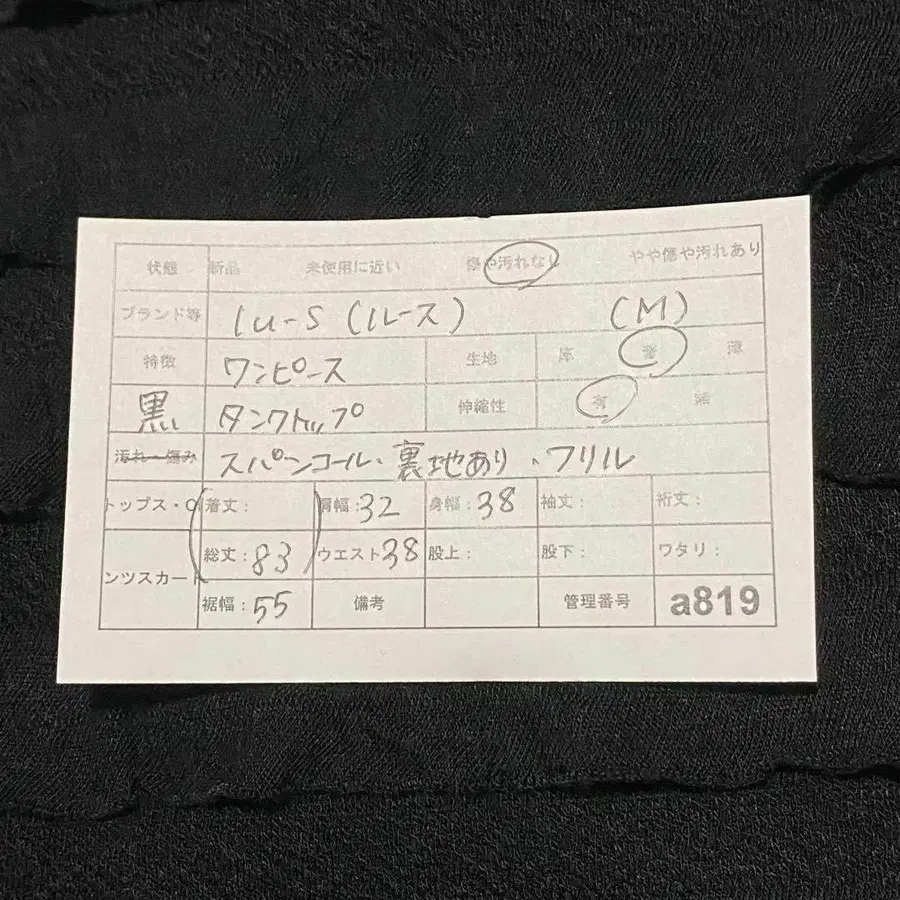 状態 新品 未使用に近い 傷や汚れなし やや傷や汚れあり
ブランド等 lu-s (ルース) (M)
特徴 ワンピース 生地 厚 普 薄
黒 タンクトップ 伸縮性 有 無
汚れ・傷み スパンコール、裏地あり、フリル
トップス・O 着丈: 肩幅:32 身幅:38 袖丈: 裄丈:
ンツスカート 総丈:83 ウエスト38 股上: 股下: ワタリ:
裾幅:55 備考 管理番号 a819